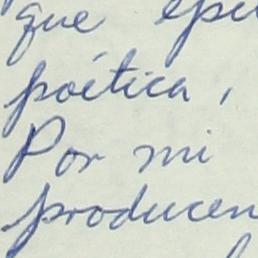 que
poética,
Por mi
producen